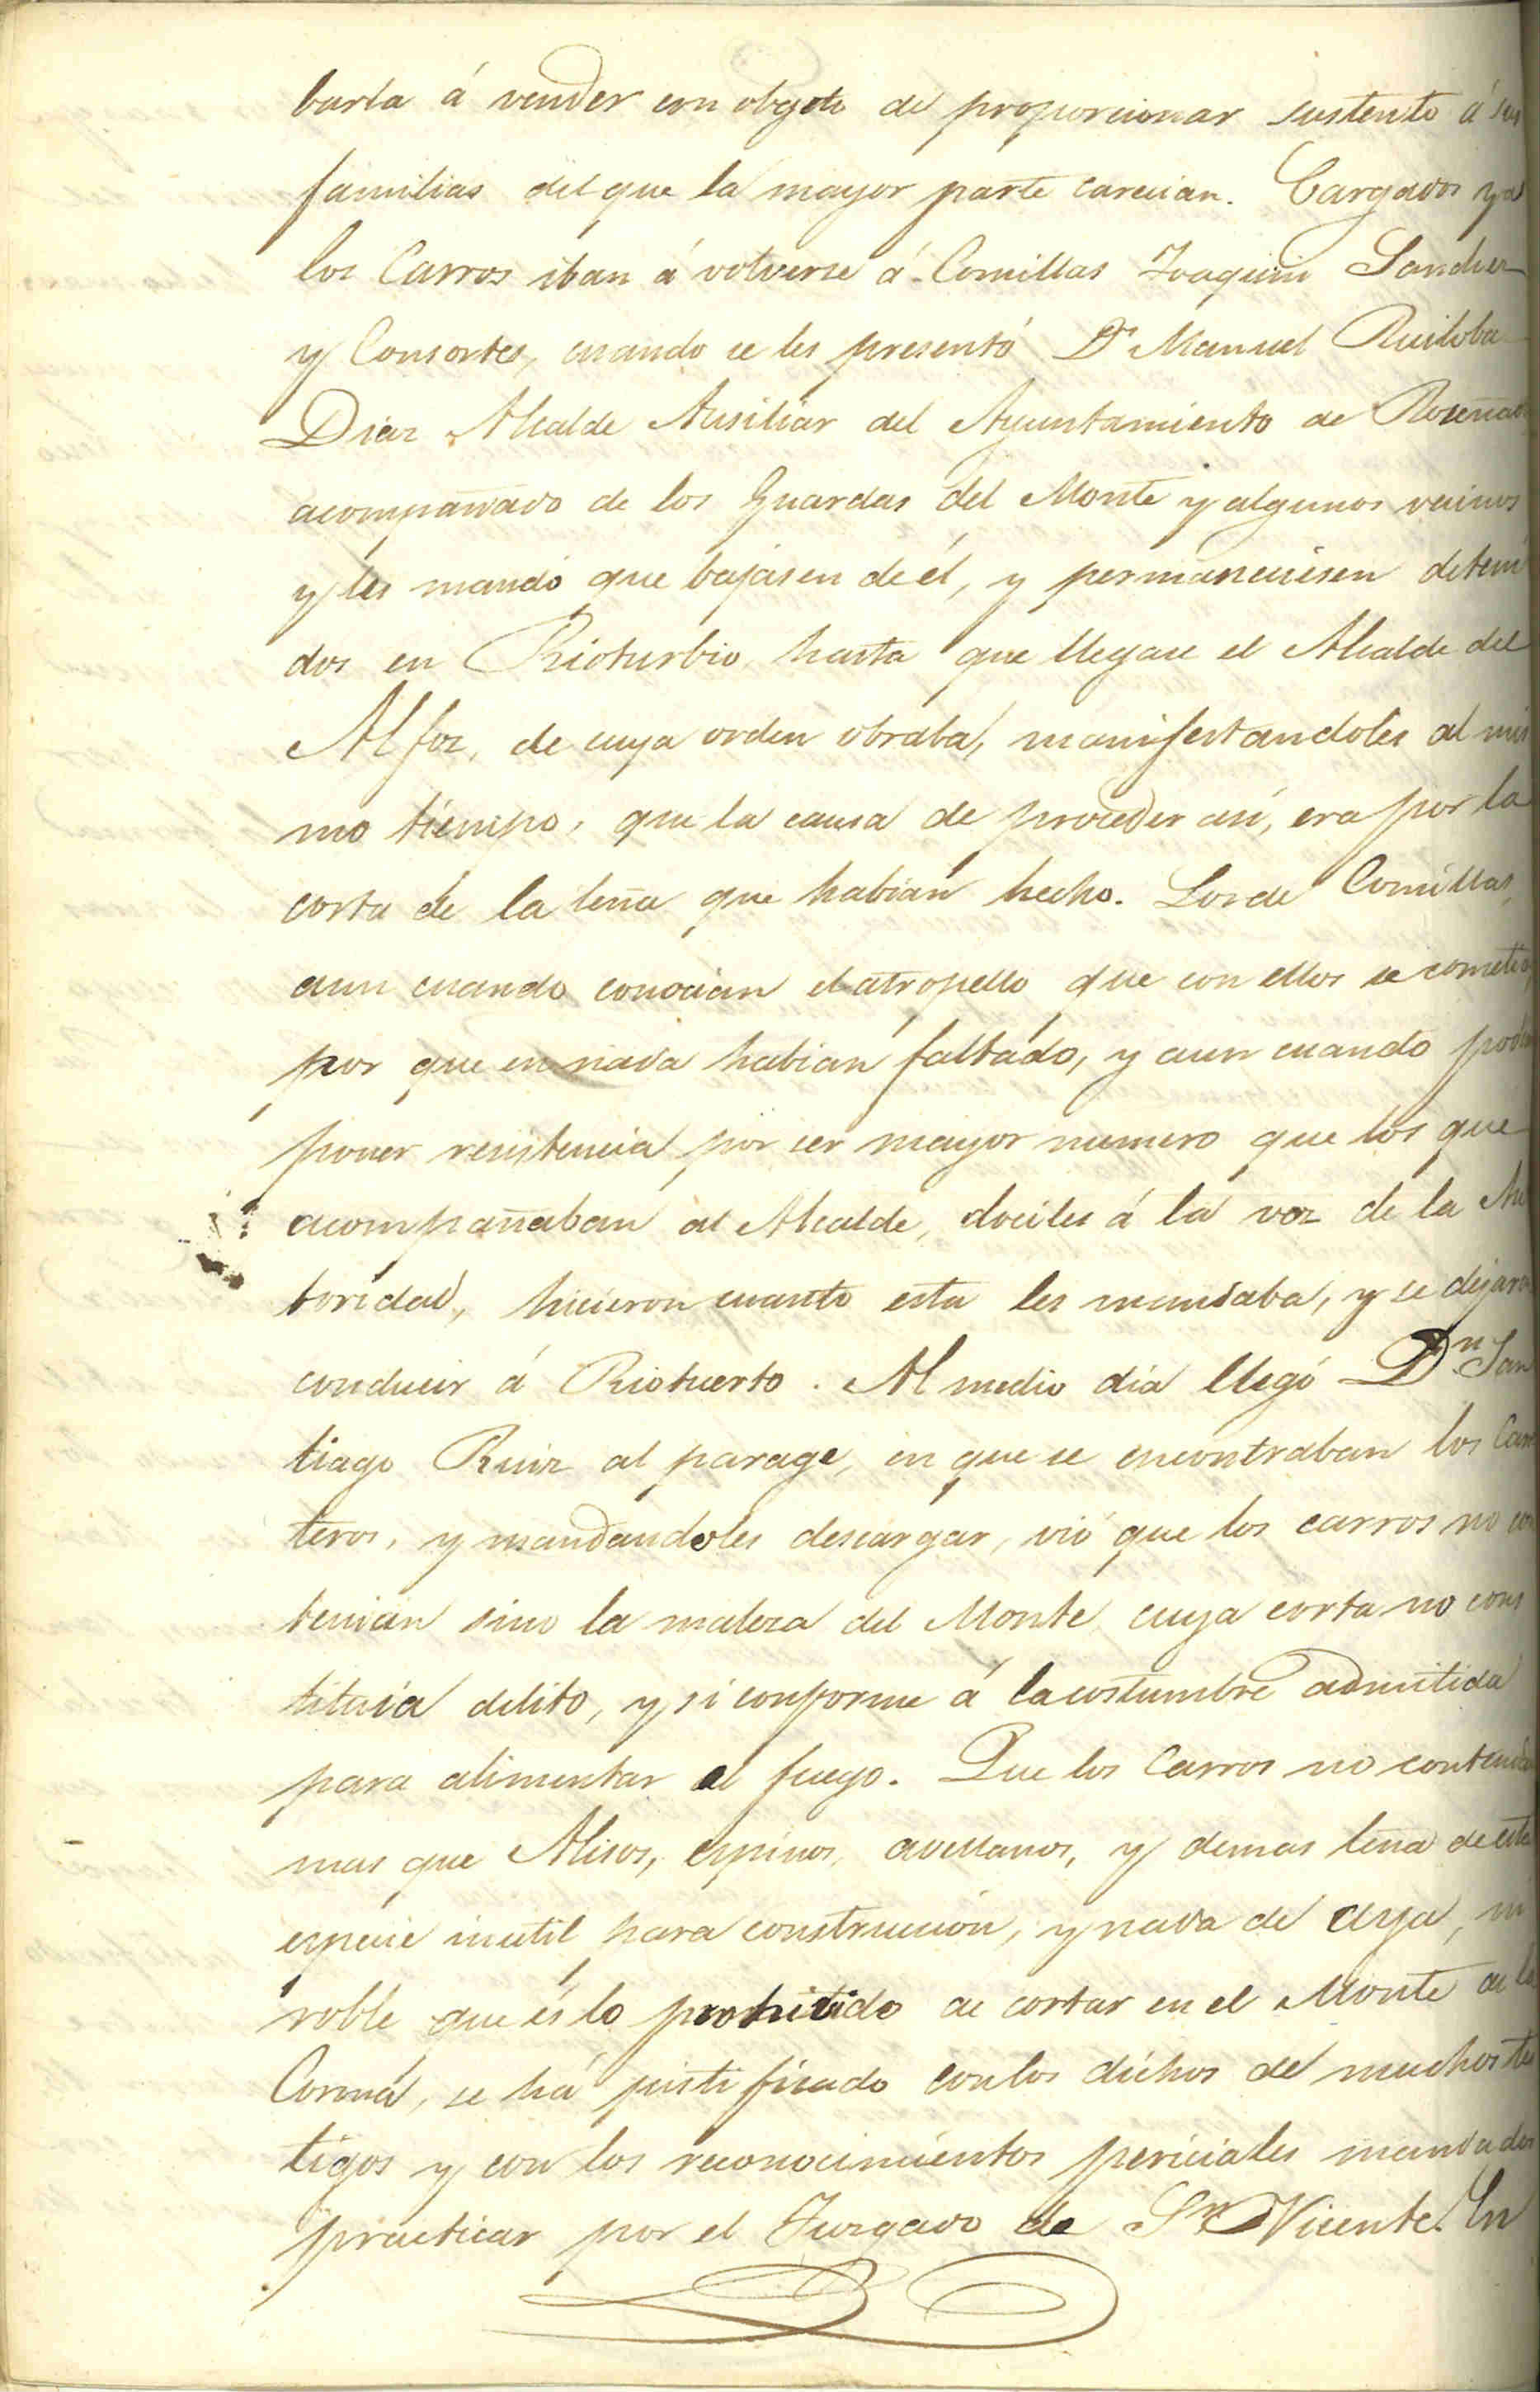 barla á vender con obgeto de proporcionar sustento á sus
familias del que la mayor parte carecian. Cargados ya
los Carros iban á volverse á Comillas Joaquin Sanchez
y Consortes, cuando se les presentó Dn Manuel Ruiloba
Diaz Alcalde Ausiliar del Ayuntamiento de
acompañado de los Guardas del Monte y algunos vecinos
y les mandó que bajasen de él, y permaneciesen deteni
dos en Rioturbio hasta que llegase el Alcalde del
Alfoz, de cuya orden obraba, manifestandoles al mis
mo tiempo, que la causa de proceder asi, era por la
corta de la leña que habian hecho. Los de Comillas,
aun cuando conocian el atropello que con ellos se cometia
por que en nada habian faltado, y aun cuando
poner resistencia por ser mayor numero que los que
acompañaban al Alcalde, dociles á la voz de la Au
toridad, hicieron cuanto esta les mandaba, y se dejaron
conducir á Riotuerto. Al medio dia llegó Dn San
tiago Ruiz al parage, en que se encontraban los Carre
teros, y mandandoles descargar, vió que los carros no con
tenian sino la maleza del Monte cuya corta no cons
tituia delito, y si conforme á la costumbre admitida
para alimentar el fuego. Que los Carros no contenian
mas que Alisos, espinos, avellanos, y demas leña de esta
especie inutil para construccion, y nada de aya, ni
roble que és lo prohibido de cortar en el Monte de la
Coroná, se há justificado con los dichos de muchos tes
tigos y con los reconocimientos periciales mandados
practicar por el Juzgado de Sn Vicente. En